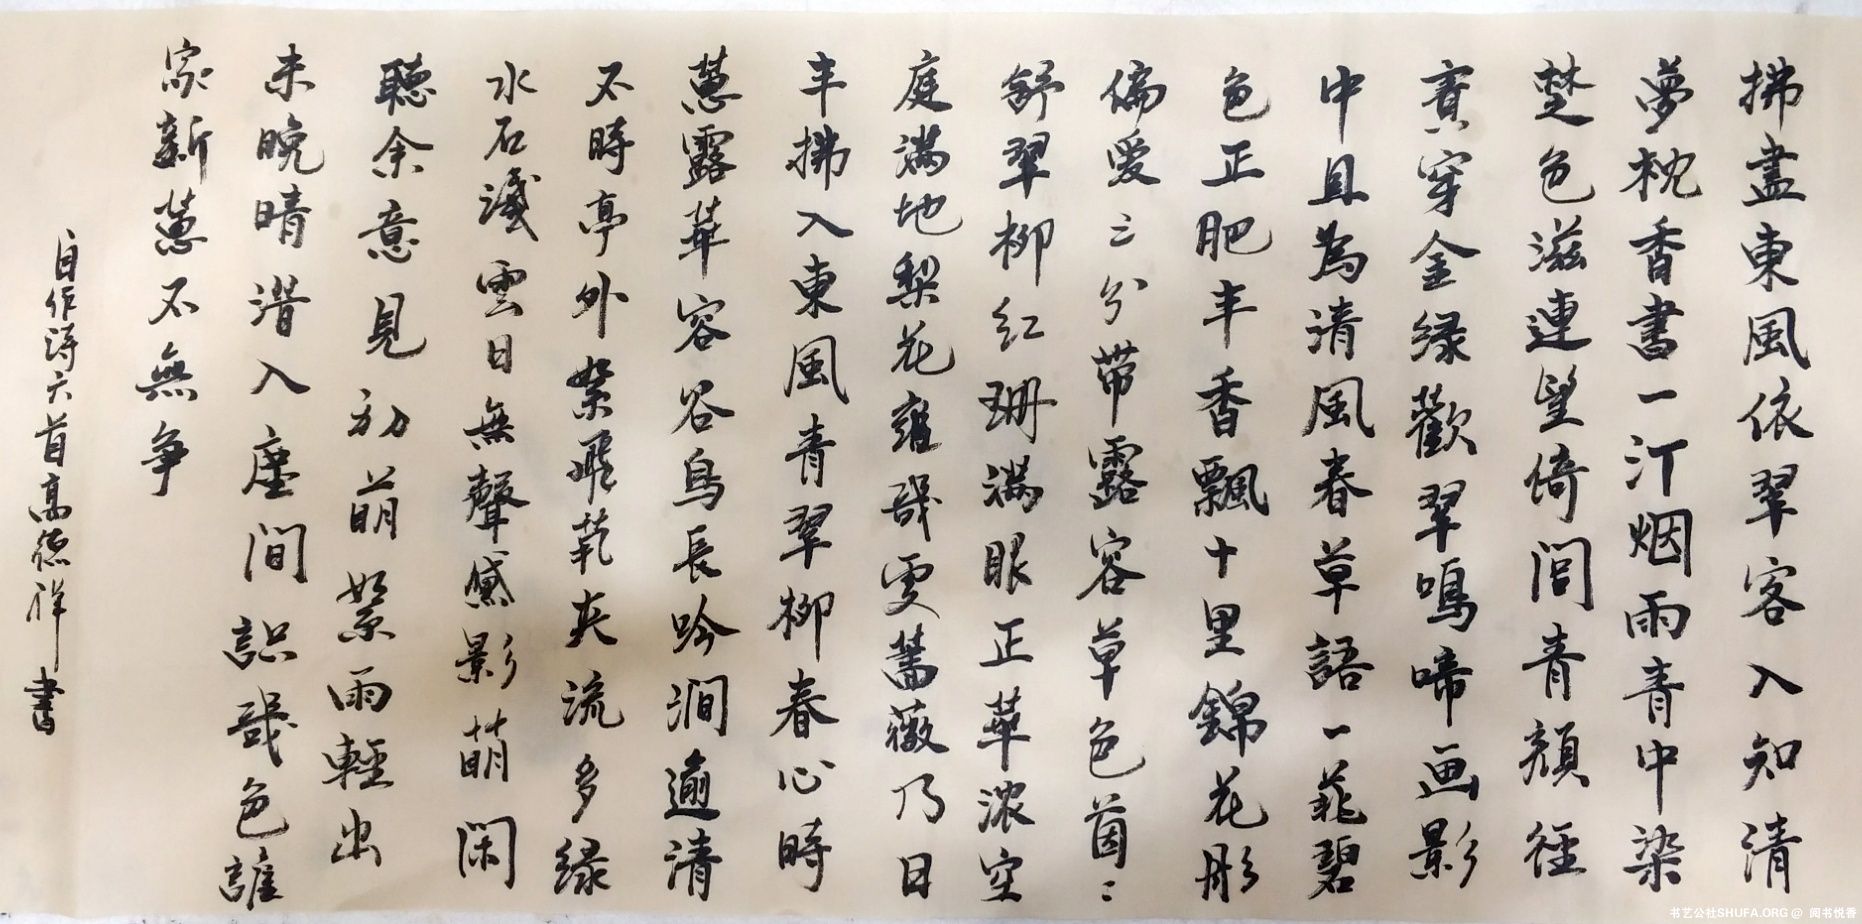 拂盡東風依翠客入知清
夢枕香書一汀烟雨青中染
楚色滋連望倚閭青顏徑
賽穿金緑歡翠鳴啼画影
中且為清風春草語一蓰碧
色正肥丰香飄十里錦花彤
偏愛三分帶露容草色茵〻
舒翠柳红珊滿眼正華濃空
庭滿地梨花蕹幾更薔薇乃日
丰拂入東風青翠柳春心時
蔥露華容谷鳥長吟澗邊清
不時亭外絮飛莼夾流多緑
水石淺雲日無聲黛影萌闲
聽余意見初萌絮雨輕出
未晚晴潛入塵間識幾色誰
家新蔥不無争
自作诗六首高德祥書
书艺公社SHUFA.ORG @ 阅书悦香